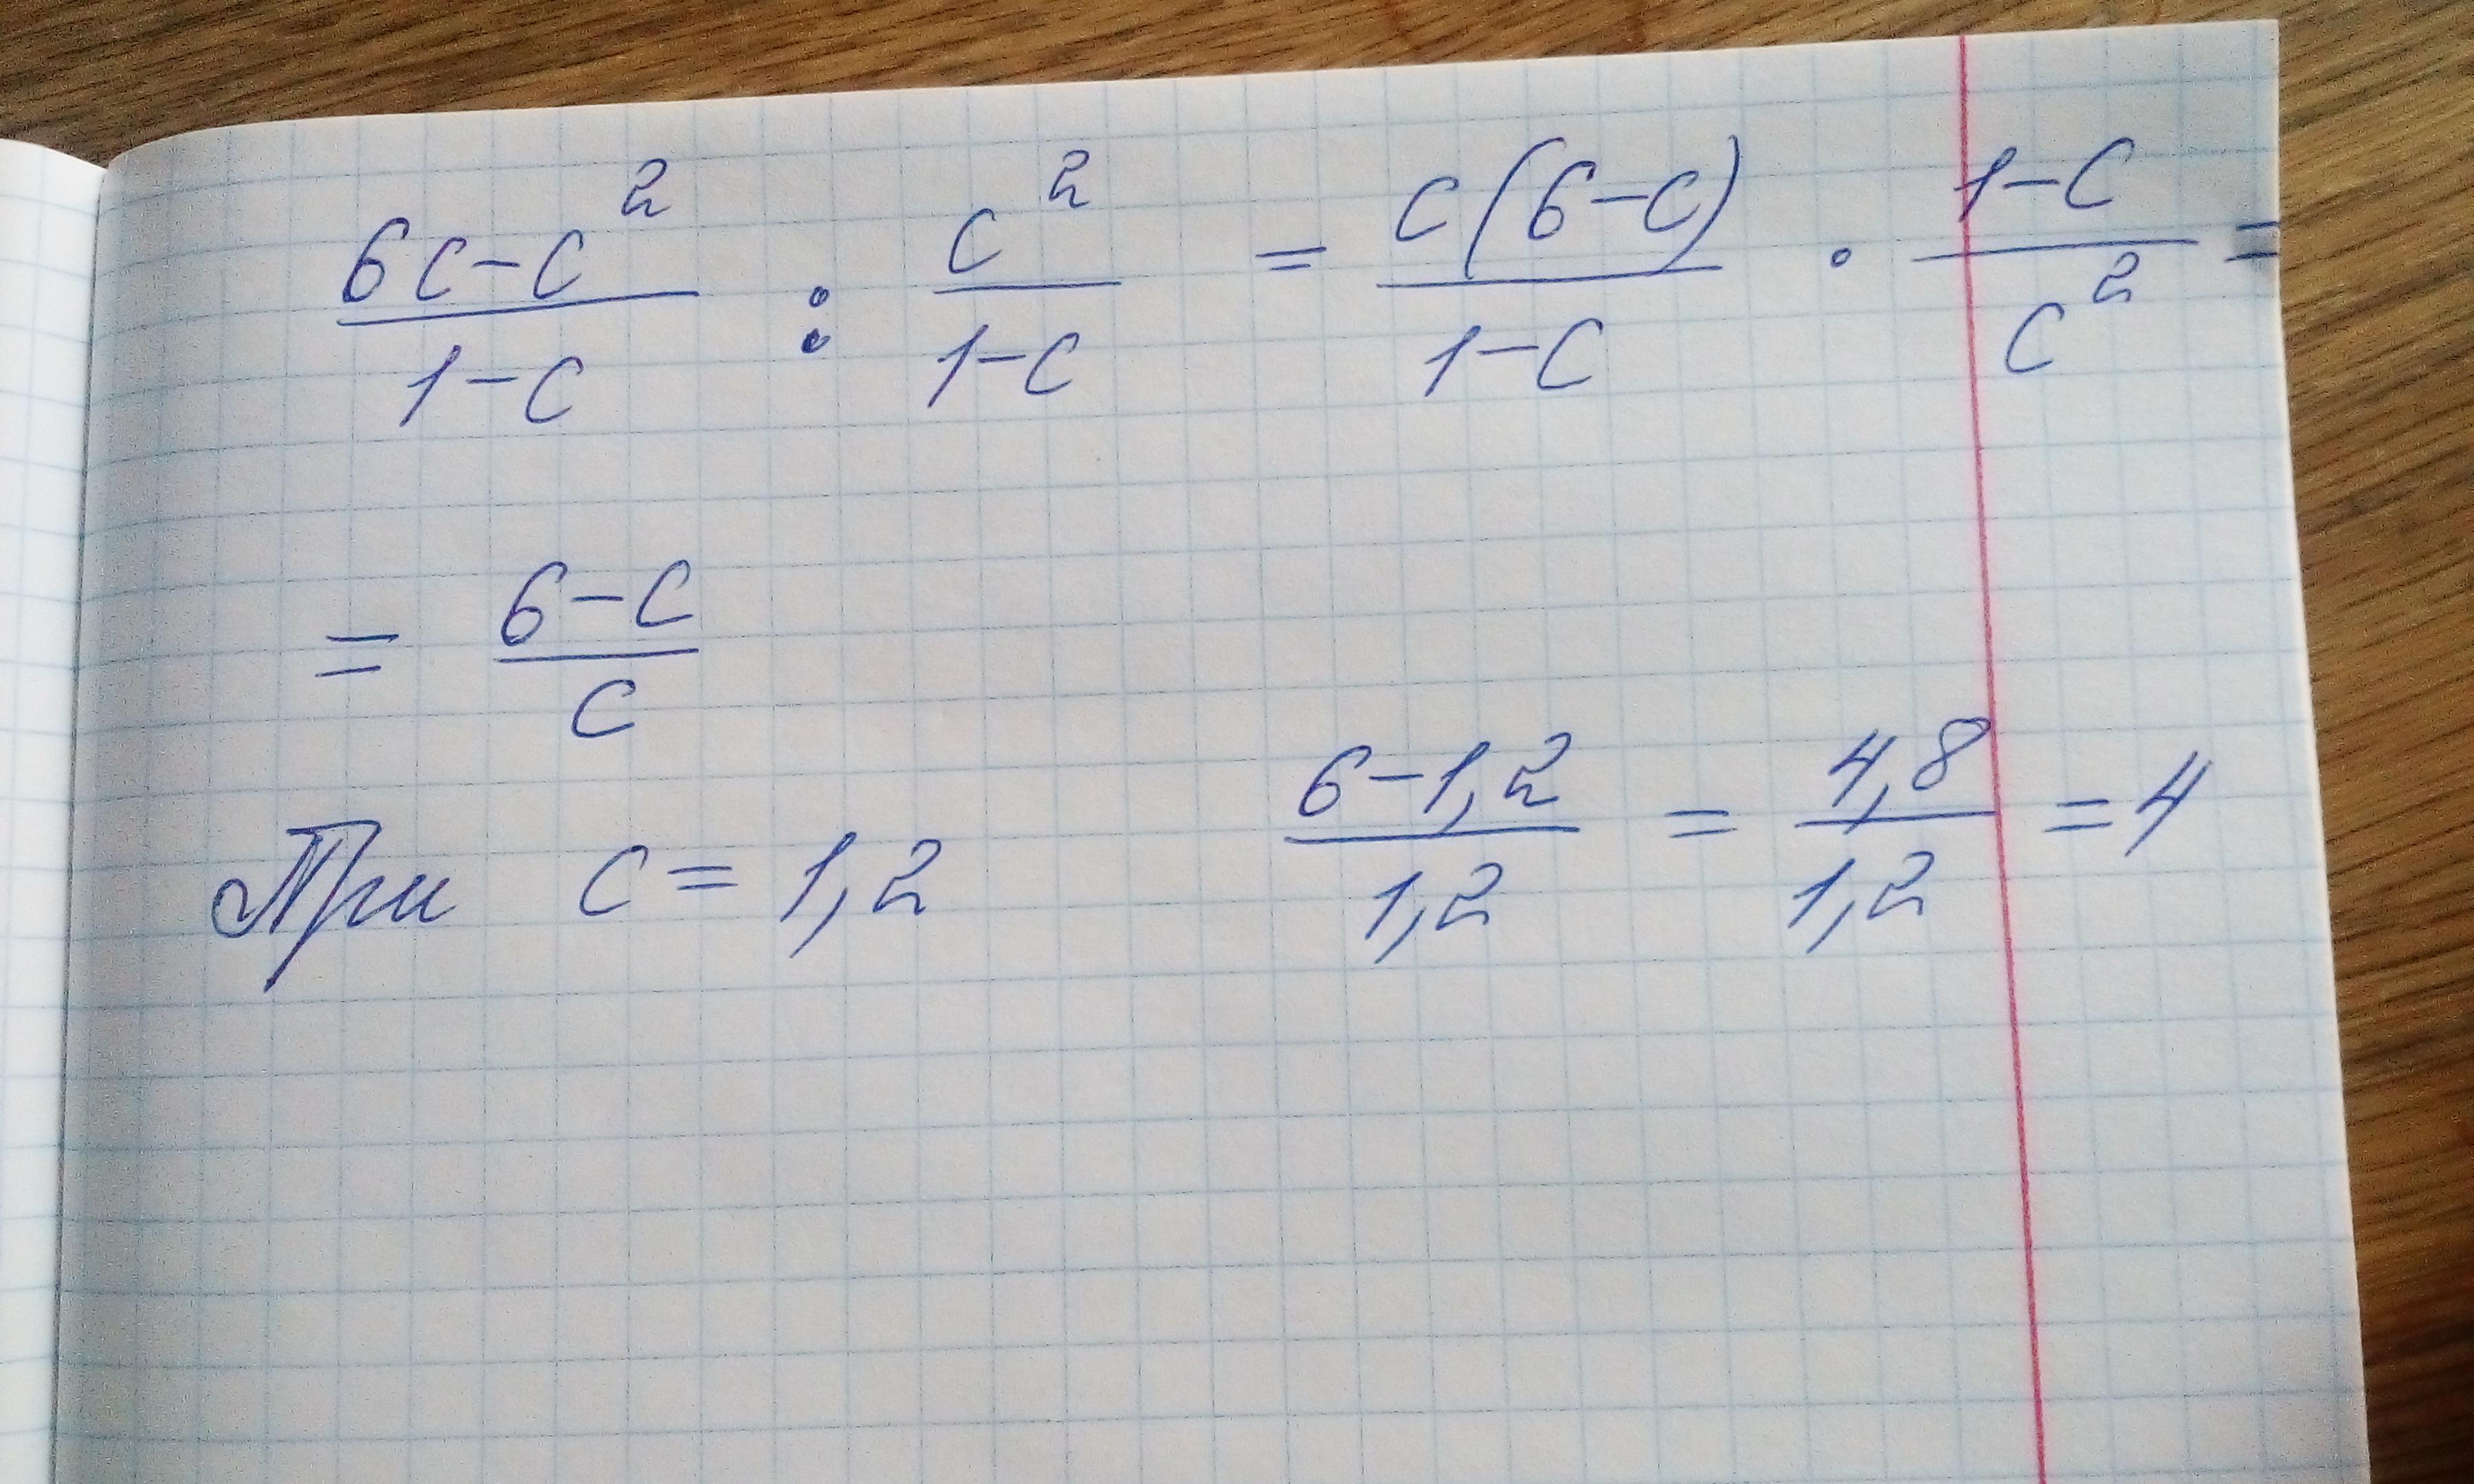 (6c-c²)/(1-c) : c²/(1-c) = c(6-c)/(1-c) · (1-c)/c² =
= (6-c)/c
При c = 1,2 (6-1,2)/1,2 = 4,8/1,2 = 4